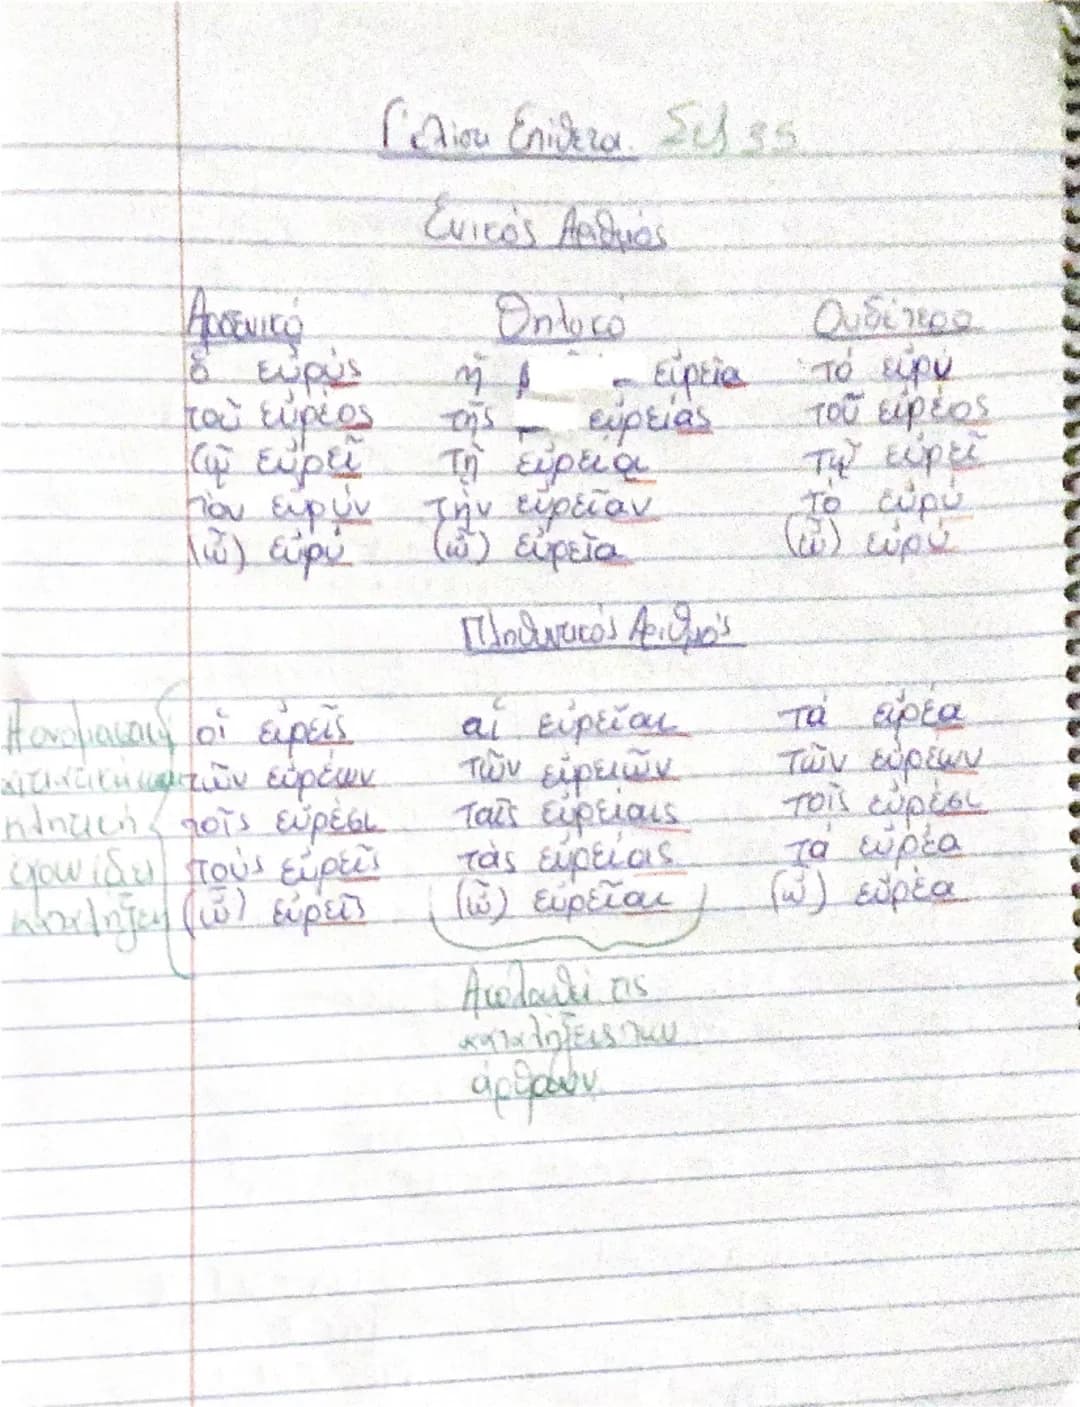 Γ' κλίση Επίθετα. Σελ 35
Ενικός Αριθμός
Αρσενικό Θηλυκό Ουδέτερο
ὁ εὐρύς ἡ - εὐρεῖα τό εὐρύ
τοῦ εὐρέος τῆς εὐρείας τοῦ εὐρέος
τῷ εὐρεῖ τῇ εὐρείᾳ τῷ εὐρεῖ
τὸν εὐρύν τὴν εὐρεῖαν τὸ εὐρύ
(ὦ) εὐρύ (ὦ) εὐρεῖα (ὦ) εὐρύ
Πληθυντικός Αριθμός
οἱ εὐρεῖς αἱ εὐρεῖαι τά εὐρέα
τῶν εὐρέων τῶν εὐρειῶν τῶν εὐρέων
τοῖς εὐρέσι ταῖς εὐρείαις τοῖς εὐρέσι
τούς εὐρεῖς τὰς εὐρείας τά εὐρέα
(ὦ) εὐρεῖς (ὦ) εὐρεῖαι (ὦ) εὐρέα
Η ονομαστική
αιτιατική και
κλητική
έχουν ίδιες
καταλήξεις
Ακολουθεί τις
καταλήξεις των
άρθρων